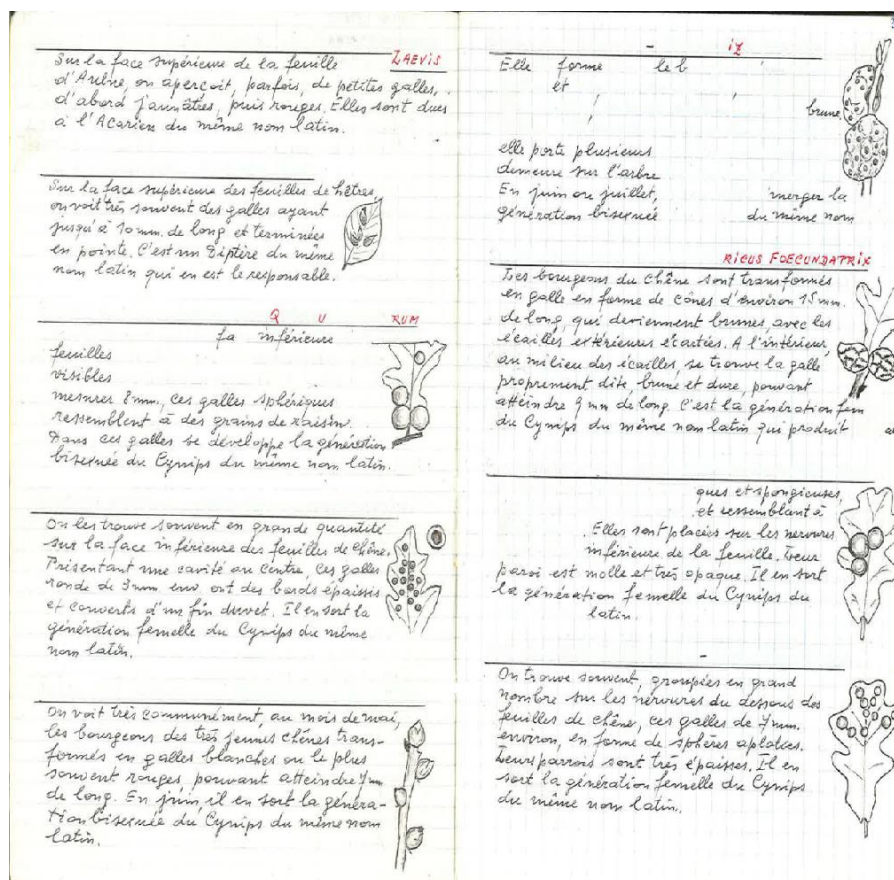 LAEVIS
Sur la face supérieure de la feuille
d'Aulne, on aperçoit, parfois, de petites galles,
d'abord jaunâtres, puis rouges. Elles sont dues
à l'Acarien du même nom latin.
Sur la face supérieure des feuilles de hêtres
on voit très souvent des galles ayant
jusqu'à 10 mm. de long et terminées
en pointe. C'est un Diptère du même
nom latin qui en est le responsable.
Q U RUM
fa inférieure
feuilles
visibles
mesurer 8 mm, ces galles sphériques
ressemblent à des grains de raisin.
Dans ces galles se développe la génération
bisexuée du Cynips du même nom latin.
On les trouve souvent en grande quantité
sur la face inférieure des feuilles de chêne.
Présentant une cavité au centre, ces galles
ronde de 3 mm env ont des bords épaissis
et couverts d'un fin duvet. Il en sort la
génération femelle du Cynips du même
nom latin.
On voit très communément, au mois de mai,
les bourgeons des très jeunes chênes trans-
formés en galles blanches ou le plus
souvent rouges, pouvant atteindre 7 mm
de long. En juin, il en sort la généra-
tion bisexuée du Cynips du même nom
latin.
iZ
Elle forme le b
et
brune
elle porte plusieurs
demeure sur l'arbre
En juin ou juillet, merger la
génération bisexuée du même nom
RICUS FOECUNDATRIX
Les bourgeons du chêne sont transformés
en galle en forme de cônes d'environ 15 mm.
de long, qui deviennent brunes, avec les
écailles extérieures écartées. A l'intérieur,
au milieu des écailles, se trouve la galle
proprement dite brune et dure, pouvant
atteindre 9 mm de long. C'est la génération fem
du Cynips du même nom latin qui produit
ques et spongieuses,
et ressemblant à
Elles sont placées sur les nervures
inférieure de la feuille. Leur
paroi est molle et très opaque. Il en sort
la génération femelle du Cynips du
latin.
On trouve souvent, groupées en grand
nombre sur les nervures du dessous des
feuilles de chêne, ces galles de 7 mm.
environ, en forme de sphères aplaties.
Leurs parrois sont très épaisses. Il en
sort la génération femelle du Cynips
du même nom latin.